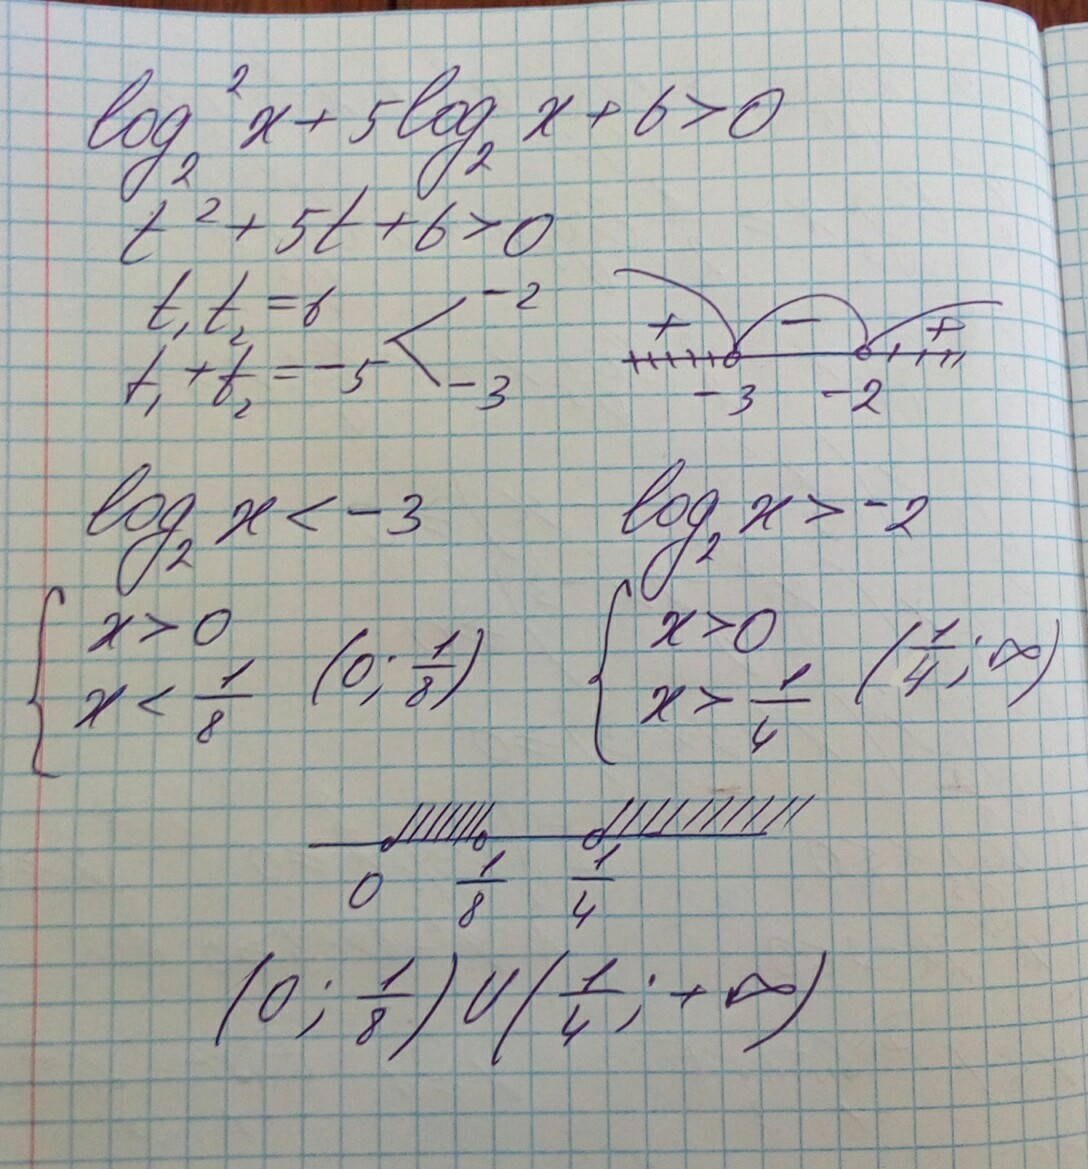 log₂²x + 5log₂x + 6 > 0
t² + 5t + 6 > 0
t₁t₂ = 6
t₁ + t₂ = -5
-2
-3
+ - +
-3 -2
log₂x < -3
x > 0
x < 1/8
(0; 1/8)
log₂x > -2
x > 0
x > 1/4
(1/4; ∞)
0 1/8 1/4
(0; 1/8) ∪ (1/4; +∞)